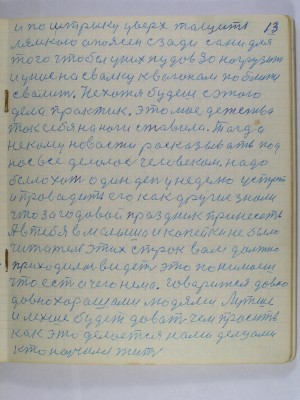 13
и по штрику уверх тащить
лямкою опоясен сзади сани для
того чтобы уних пудов 30 нагрузит
и уше на свалку квагонам поближи
свалит. Нехотя будеш сэтого
дела практик. это мое детство
так себя наноги ставила. Тогда
некому новости расказывать под
нос все деловое человекам, надо
было хот один ден у неделю устроит
и проводить его как другие знали
что за годовой праздник принесеть
А втебя вмальша и копейки не было
читателе этих строк вам должно
приходилос видеть это понимаеш
что ест а чего нема. говорится давно
давно хорошами людями Лутше
и лехше будет доват чем просить
как это делается нами делцами
кто начале жит